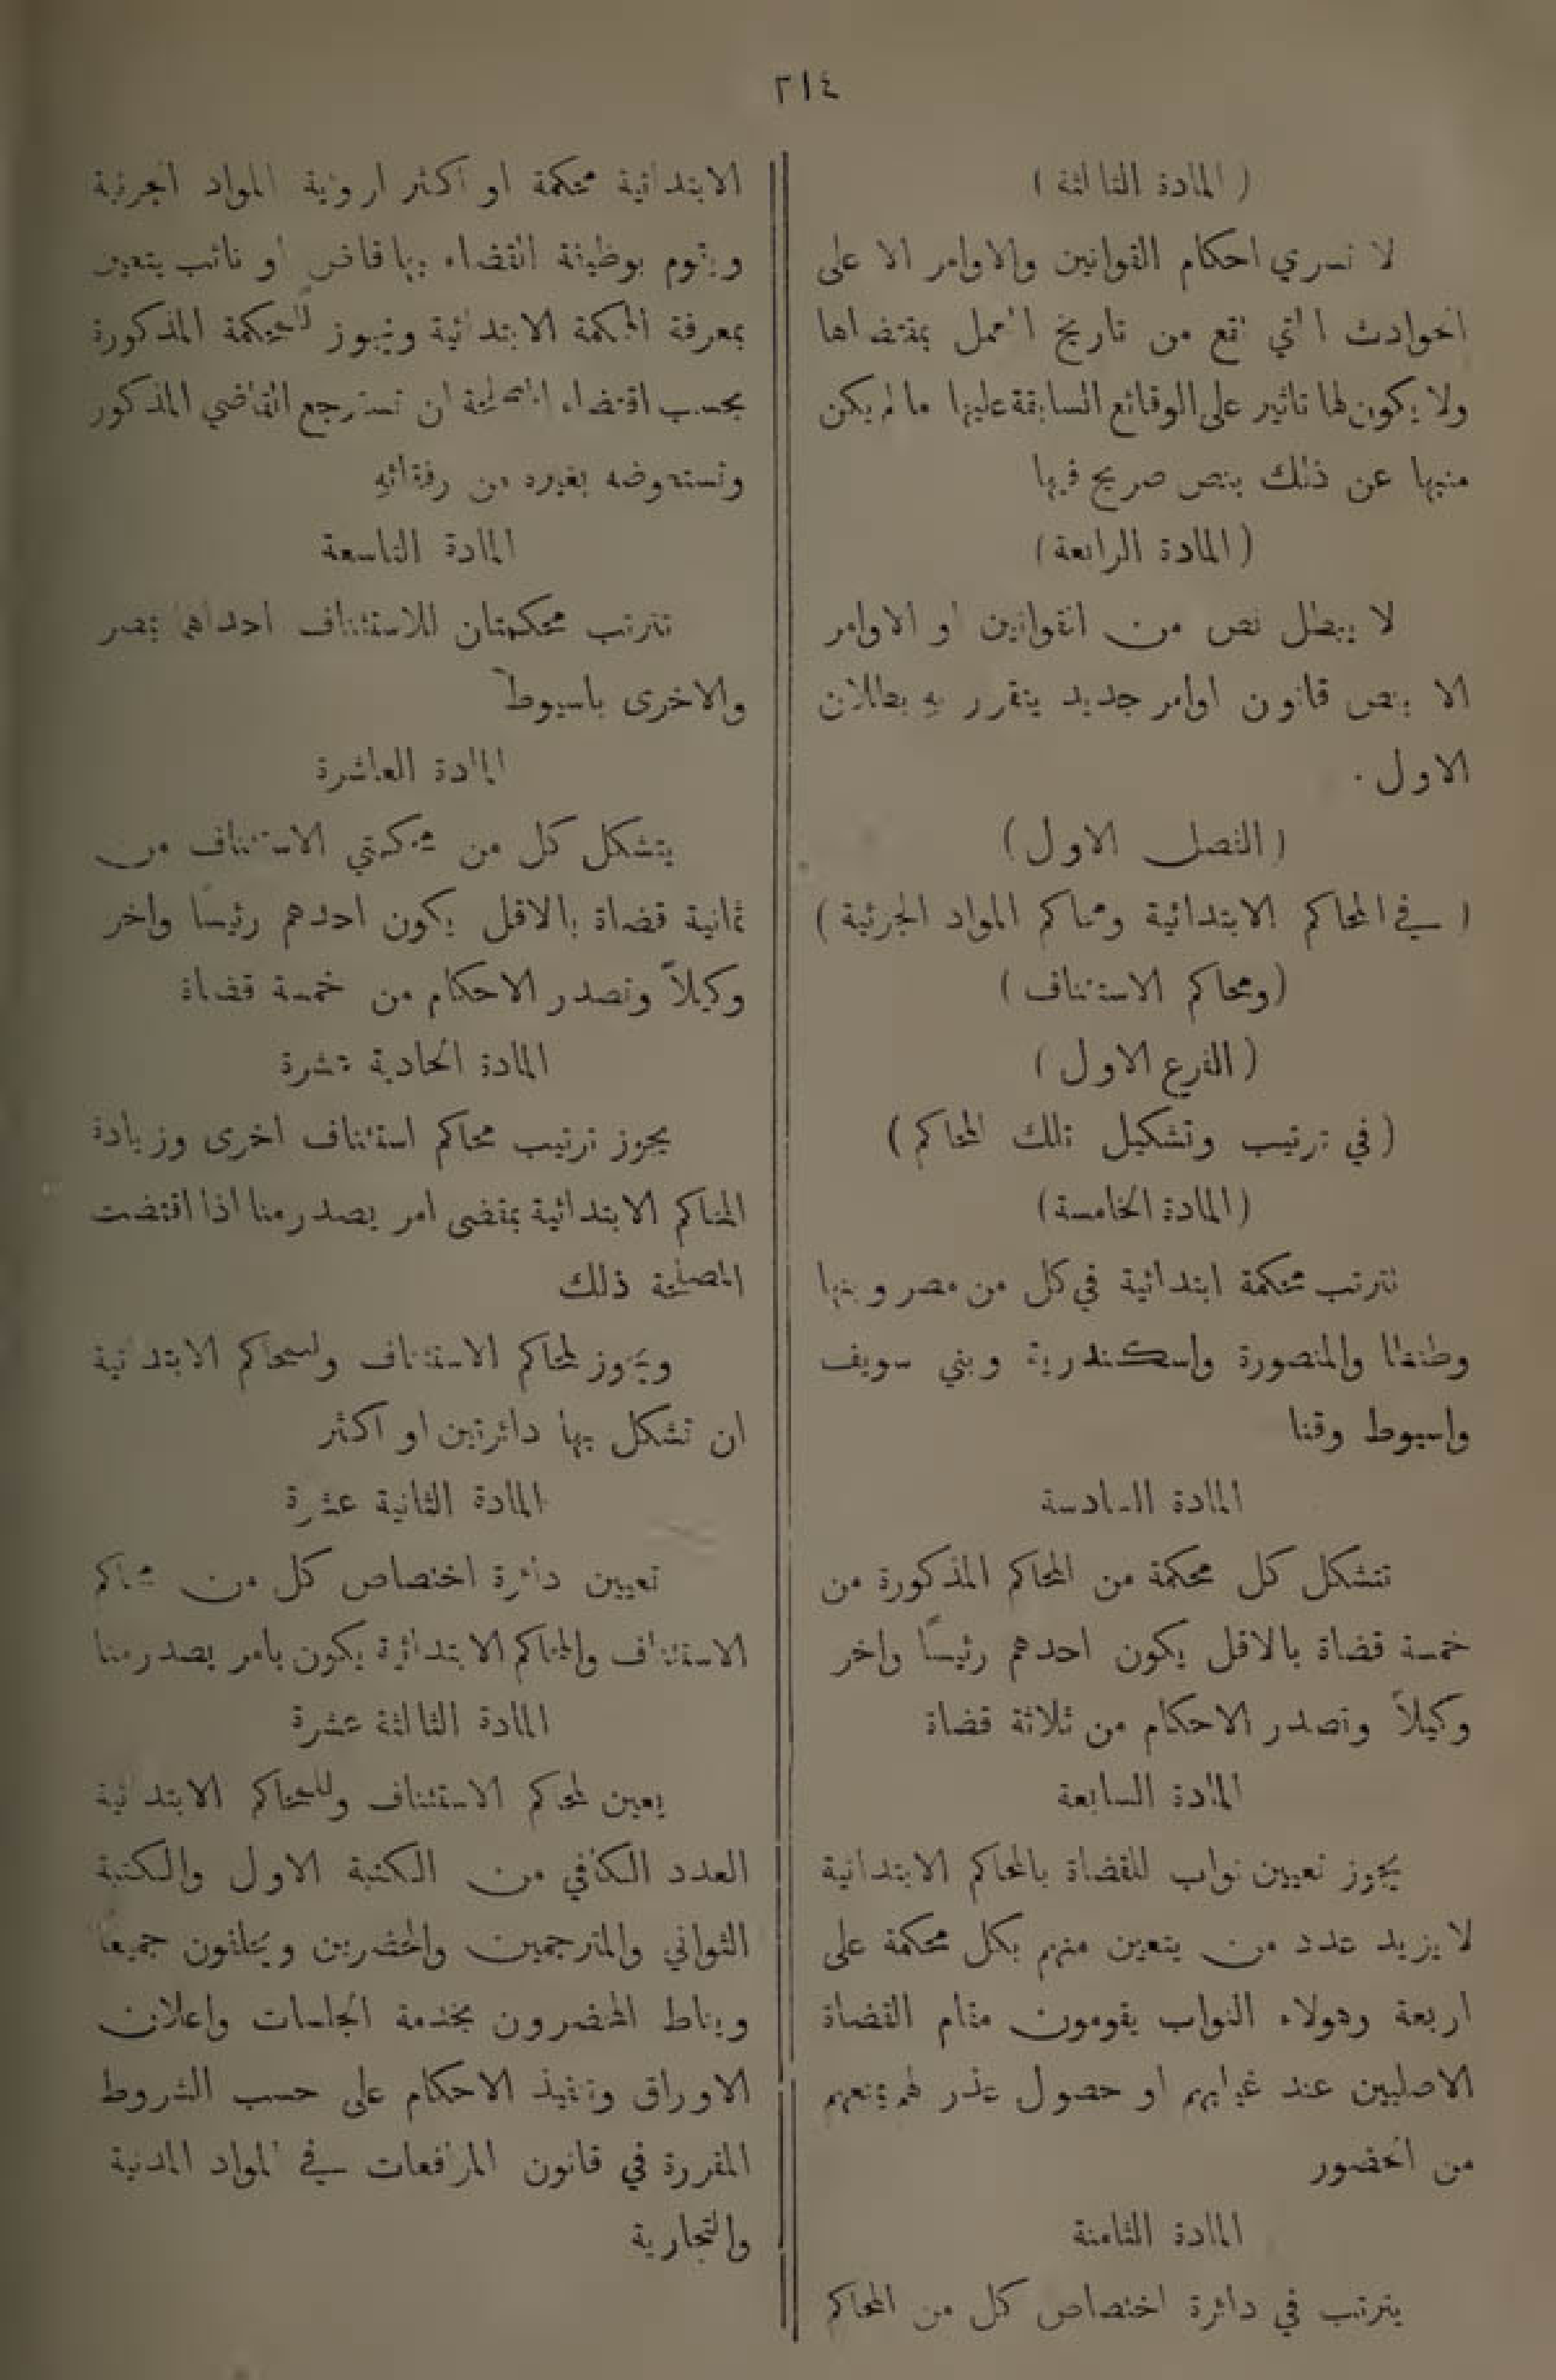 ٢١٤
( المادة الثالثة )
لا تسري احكام القوانين والاوامر الا على
الحوادث التي تقع من تاريخ العمل بمقتضاها
ولا يكون لها تاثير على الوقائع السابقة عليها ما لم يكن
منبها عن ذلك بنص صريح فيها
( المادة الرابعة )
لا يبطل نص من القوانين او الاوامر
الا بنص قانون اوامر جديد يتقرر به بطلان
الاول .
( الفصل الاول )
( في المحاكم الابتدائية ومحاكم المواد الجزئية )
( ومحاكم الاستئناف )
( الفرع الاول )
( في ترتيب وتشكيل تلك المحاكم )
( المادة الخامسة )
تترتب محكمة ابتدائية في كل من مصر وبنها
وطنطا والمنصورة واسكندرية وبني سويف
واسيوط وقنا
المادة السادسة
تتشكل كل محكمة من المحاكم المذكورة من
خمسة قضاة بالاقل يكون احدهم رئيسًا واخر
وكيلاً وتصدر الاحكام من ثلاثة قضاة
المادة السابعة
يجوز تعيين نواب للقضاة بالمحاكم الابتدائية
لا يزيد عدد من يتعين منهم بكل محكمة على
اربعة وهولاء النواب يقومون مقام القضاة
الاصليين عند غيابهم او حصول عذر لهم يمنعهم
من الحضور
المادة الثامنة
يترتب في دائرة اختصاص كل من المحاكم
الابتدائية محكمة او اكثر لروية المواد الجزئية
ويقوم بوظيفة القضاء بها قاض او نائب يتعين
بمعرفة المحكمة الابتدائية ويجوز للمحكمة المذكورة
بحسب اقتضاء المصلحة ان تسترجع القاضي المذكور
وتستعوضه بغيره من رفقائه
المادة التاسعة
تترتب محكمتان للاستئناف احداهما بمصر
والاخرى باسيوط
المادة العاشرة
يتشكل كل من محكمتي الاستئناف من
ثمانية قضاة بالاقل يكون احدهم رئيسًا واخر
وكيلاً وتصدر الاحكام من خمسة قضاة
المادة الحادية عشرة
يجوز ترتيب محاكم استئناف اخرى وزيادة
المحاكم الابتدائية بمقضى امر يصدر منا اذا اقتضت
المصلحة ذلك
ويجوز لمحاكم الاستئناف وللمحاكم الابتدائية
ان تشكل بها دائرتين او اكثر
المادة الثانية عشرة
تعيين دائرة اختصاص كل من محاكم
الاستئناف والمحاكم الابتدائية يكون بامر يصدر منا
المادة الثالثة عشرة
يعين لمحاكم الاستئناف وللمحاكم الابتدائية
العدد الكافي من الكتبة الاول والكتبة
الثواني والمترجمين والمحضرين ويحلفون جميعًا
ويناط المحضرون بخدمة الجلسات واعلان
الاوراق وتنفيذ الاحكام على حسب الشروط
المقررة في قانون المرافعات في المواد المدنية
والتجارية